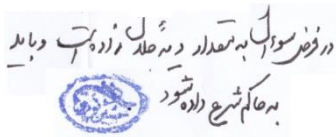 در فرض سوءال به مقدار دیهٔ حلال زاده است و باید
به حاکم شرع داده شود